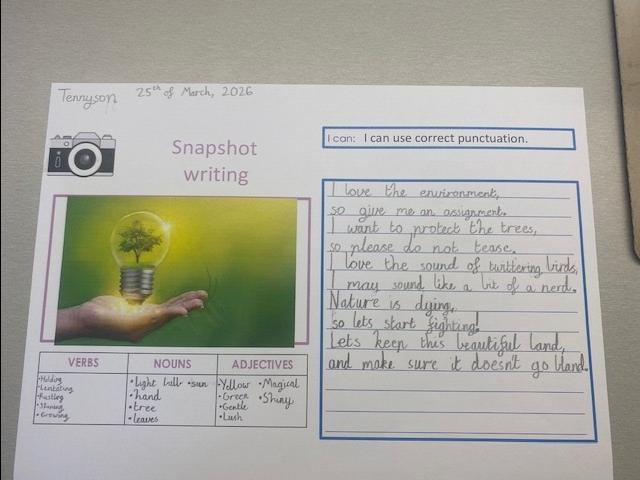 Tennyson 25th of March, 2026
Snapshot
writing
I can: I can use correct punctuation.
I love the environment,
so give me an assignment.
I want to protect the trees,
so please do not tease.
I love the sound of twittering birds,
I may sound like a bit of a nerd.
Nature is dying,
so lets start fighting!
Lets keep this beautiful land,
and make sure it doesn't go bland.
VERBS
•Holding
•Rustling
•Shining
•Growing
NOUNS
•light bulb •sun
•hand
•tree
•leaves
ADJECTIVES
•Yellow •Magical
•Green •Shiny
•Gentle
•Lush